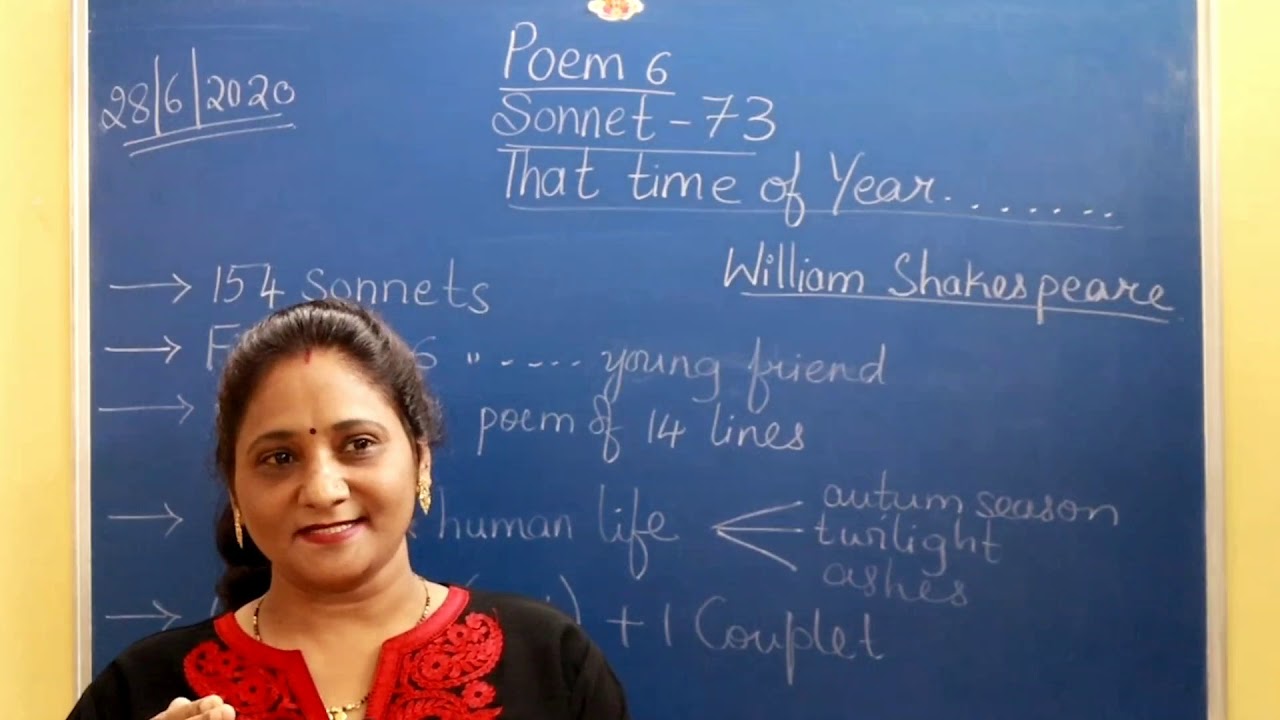 28/6/2020
Poem 6
Sonnet - 73
That time of Year........
William Shakespeare
→ 154 Sonnets
→ 6 " ----- young friend
→ poem of 14 lines
→ human life
autum season
twilight
ashes
→ + 1 Couplet